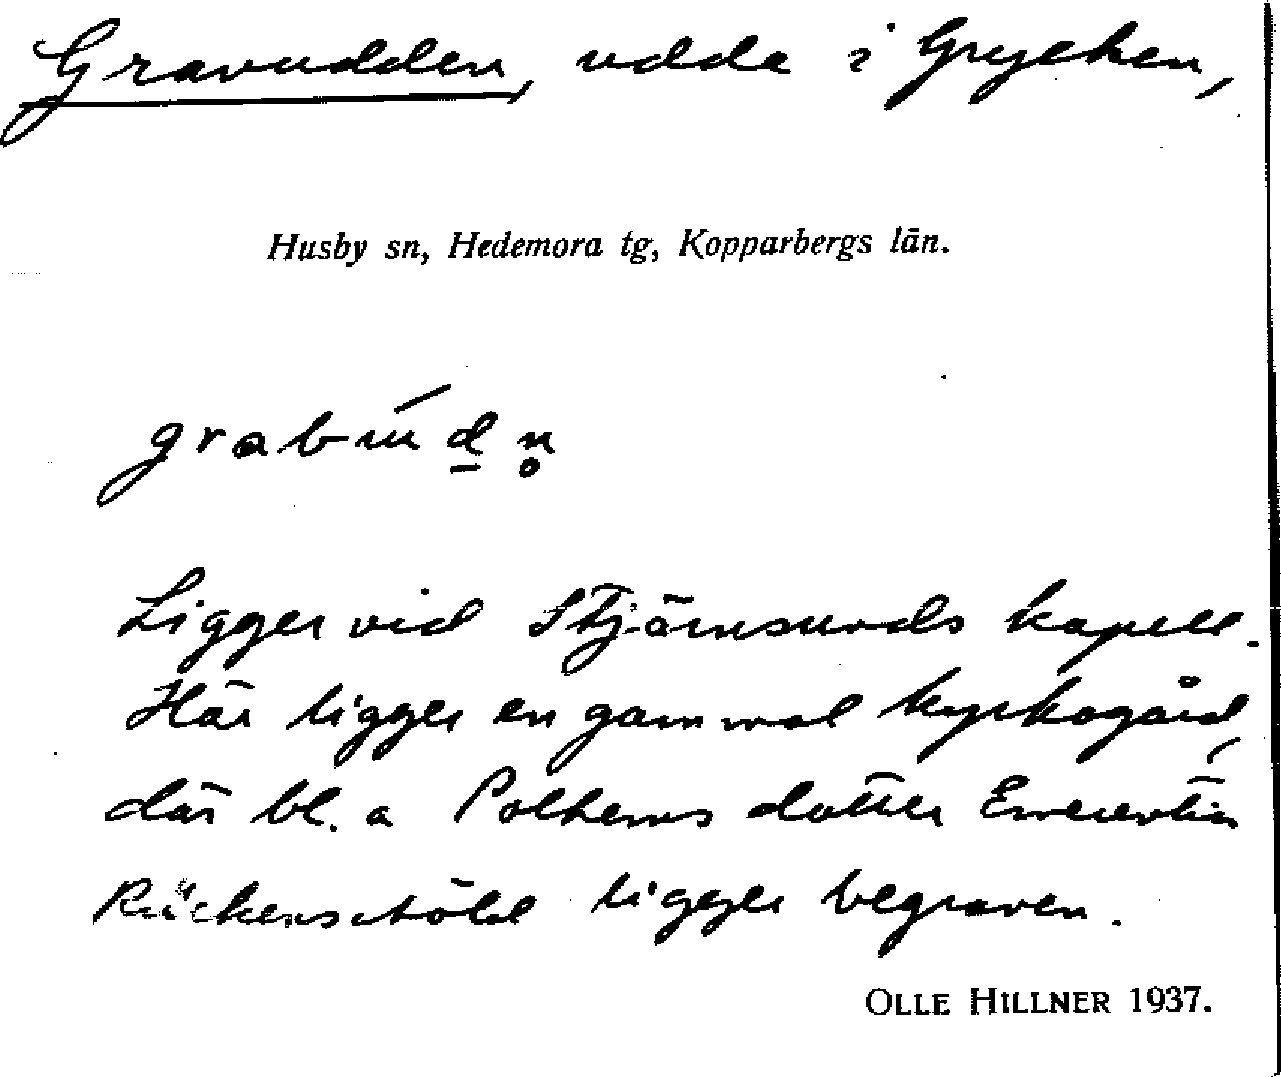 Gravudden, udde i Grycken,
Husby sn, Hedemora tg, Kopparbergs län.
Ligger vid Stjärnsunds kapell.
Här ligger en gammal kyrkogård,
där bl. a Polhems dotter Emerentia
Rückersköld ligger begraven.
OLLE HILLNER 1937.